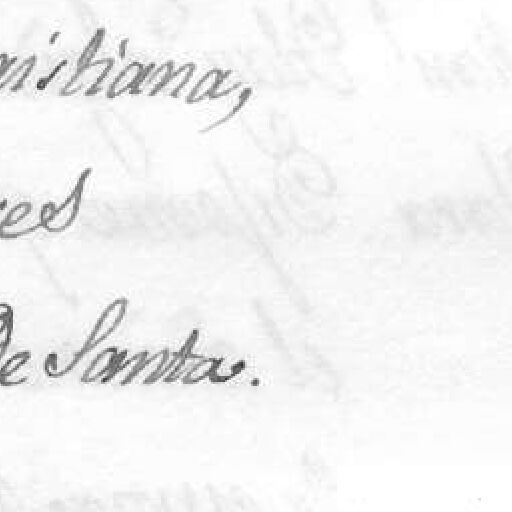 ristiana,
es
de Santa.